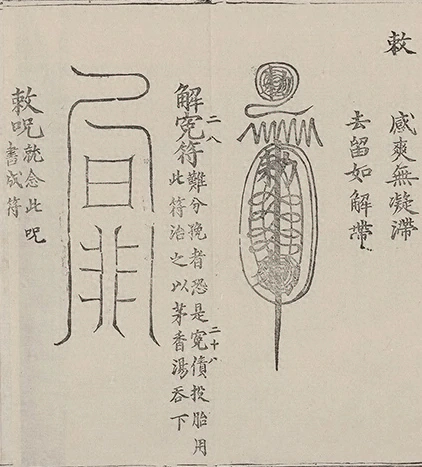 敕
感爽無凝滯
去留如解帶
解寃符
二八
難分娩者恐是寃債投胎用
二十八
此符治之以茅香湯吞下
敕呪
就念此呪
書成符